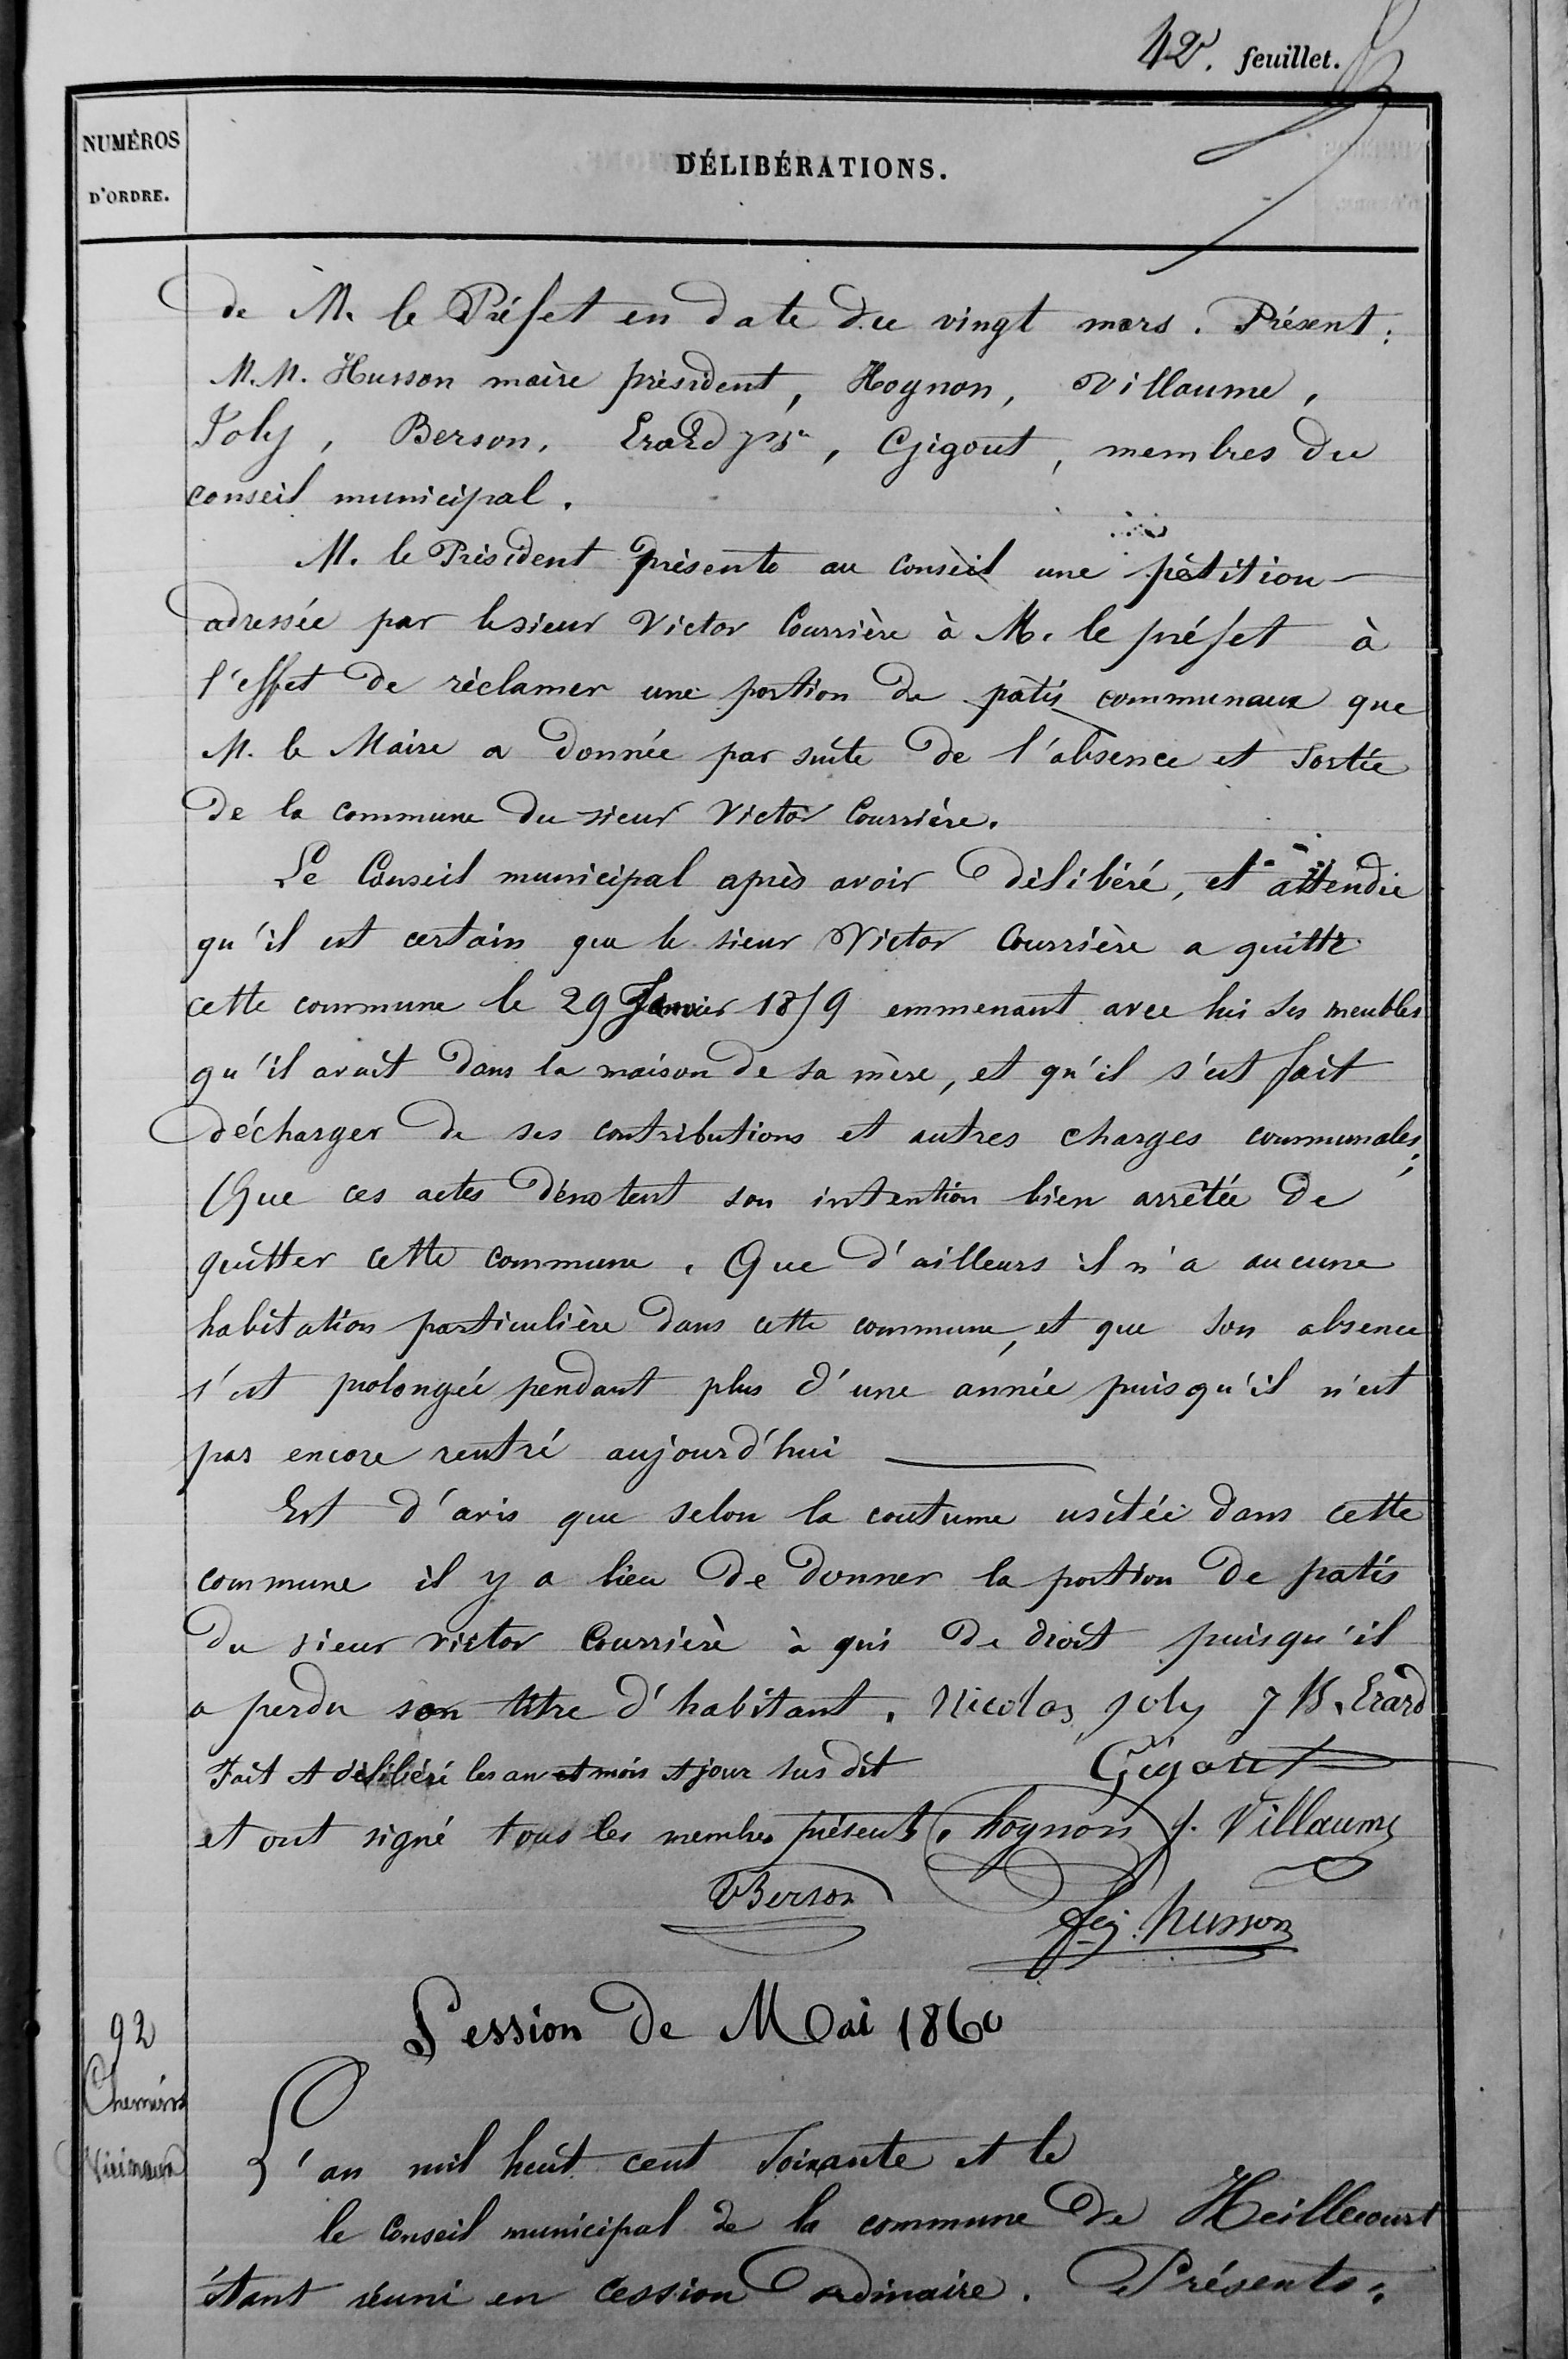 42e. feuillet.
NUMÉROS
D'ORDRE.
DÉLIBÉRATIONS.
de M. le Préfet en date du vingt mars. Présent :
M.M. Husson maire président, Hognon, Villaume,
Joly, Berson, Erard, Gigout, membres du
conseil municipal.
M. le Président présente au conseil une pétition
adressée par le sieur Victor Courrière à M. le préfet à
l'effet de réclamer une portion de patis communaux que
M. le Maire a donnée par suite de l'absence et sortie
de la commune du sieur Victor Courrière.
Le Conseil municipal après avoir délibéré, et attendu
qu'il est certain que le sieur Victor Courrière a quitté
cette commune le 29 Janvier 1859 emmenant avec lui ses meubles
qu'il avait dans la maison de sa mère, et qu'il s'est fait
décharger de ses contributions et autres charges communales;
Que ces actes dénotent son intention bien arrêtée de
quitter cette commune. Que d'ailleurs il n'a aucune
habitation particulière dans cette commune, et que son absence
s'est prolongée pendant plus d'une année puisqu'il n'est
pas encore rentré aujourd'hui
Est d'avis que selon la coutume usitée dans cette
commune il y a lieu de donner la portion de patis
du sieur victor Courrière à qui de droit puisqu'il
a perdu son titre d'habitant. Nicolas joly J B. Erard
Fait et délibéré les an et mois et jour sus dit Gigout
et ont signé tous les membres présents. hognon j. Villaume
Berson
Husson
Session de Mai 1860
92
Chemins
Vicinaux
L'an mil huit cent soixante et le
le Conseil municipal de la commune de Heillecourt
étant réuni en cession ordinaire. Présents :